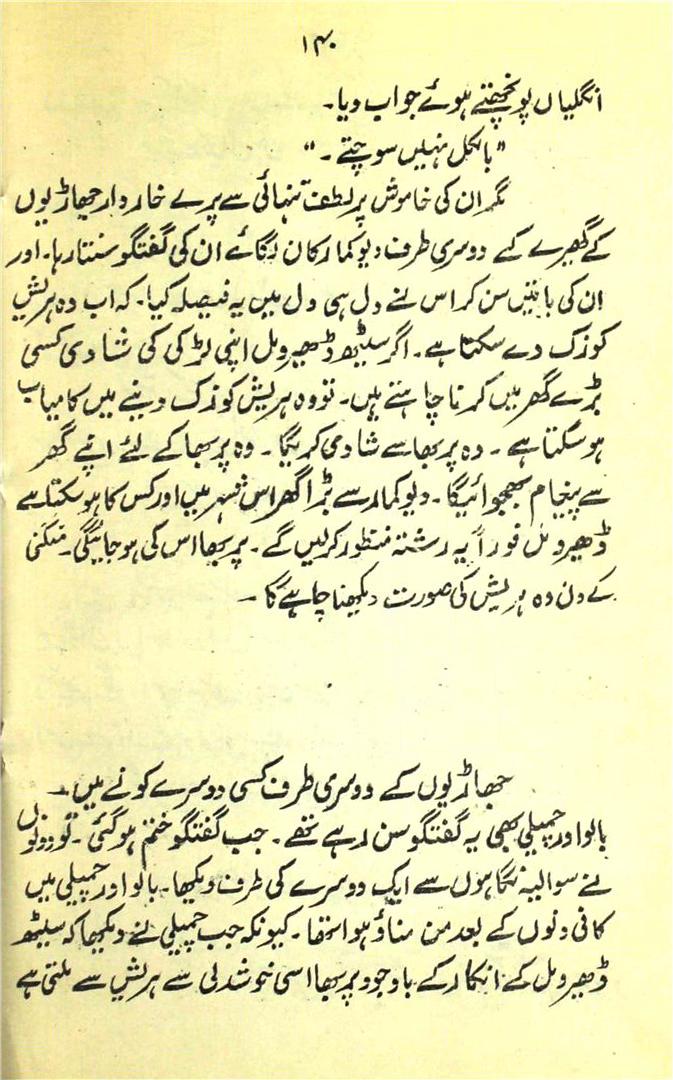 ۱۴۰
انگلیاں پونچھتے ہوئے جواب دیا۔
”بالکل نہیں سوچتے۔“
مگر ان کی خاموش پر لطف تنہائی سے پرے خاردار جھاڑیوں
کے گھیرے کے دوسری طرف دیو کمار کان لگائے ان کی گفتگو سنتا رہا۔ اور
ان کی باتیں سن کر اس نے دل ہی دل میں یہ فیصلہ کیا۔ کہ اب وہ ہریش
کو زک دے سکتا ہے۔ اگر سیٹھ ڈھیرو مل اپنی لڑکی کی شادی کسی
بڑے گھر میں کرنا چاہتے ہیں۔ تو وہ ہریش کو زک دینے میں کامیاب
ہو سکتا ہے۔ وہ پربھا سے شادی کریگا۔ وہ پربھا کے لئے اپنے گھر
سے پیغام بھجوائیگا۔ دیو کمار سے بڑا گھر اس شہر میں اور کس کا ہو سکتا ہے
ڈھیرو مل فوراً یہ رشتہ منظور کر لیں گے۔ پربھا اس کی ہو جائیگی۔ منگنی
کے دن وہ ہریش کی صورت دیکھنا چاہے گا۔
جھاڑیوں کے دوسری طرف کسی دوسرے کونے میں۔
بالو اور چمپیلی بھی یہ گفتگو سن رہے تھے۔ جب گفتگو ختم ہو گئی۔ تو دونوں
نے سوالیہ نگاہوں سے ایک دوسرے کی طرف دیکھا۔ بالو اور چمپیلی میں
کافی دنوں کے بعد من مناؤ ہوا تھا۔ کیونکہ جب چمپیلی نے دیکھا کہ سیٹھ
ڈھیرو مل کے انکار کے باوجود پربھا اسی خوشدلی سے ہریش سے ملتی ہے